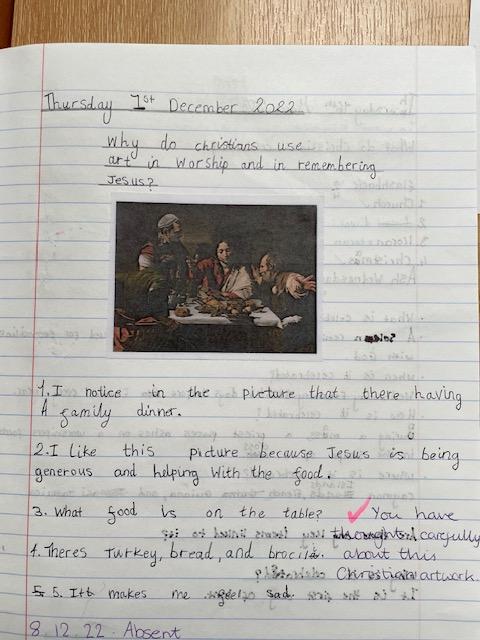 Thursday 1st December 2022
Why do christians use
art in worship and in remembering
Jesus?
1. I notice in the picture that there having
A family dinner.
2. I like this picture because Jesus is being
generous and helping With the food.
3. What food is on the table?
You have
thought carefully
4. Theres Turkey, bread, and
about this
Christian artwork.
5. It makes me feel sad.
8.12.22 Absent